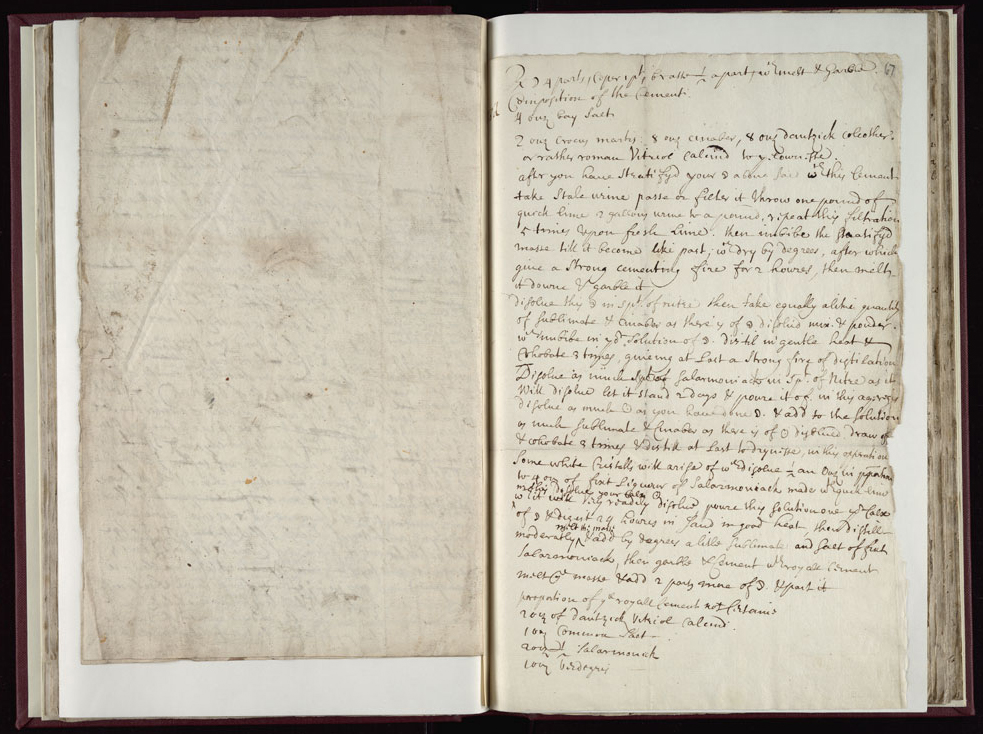 67
4 parts, Coper 1 pt, brasse ½ a part, wch melt & Garble.
Composition of the Cement.
4 onz bay Salt
2 onz Crocus martis, 8 onz cinaber, 8 onz dantzick colcothar.
or rather roman Vitriol Calcind to
after you have Stratifyd your ☽ above said wth this Cement
take Stale urine passe or filter it throw one pound of
quick lime 2 gallons urine to a pound, repeat this filtration
5 times upon fresh Lime. then imbibe the Stratifyd
masse till it become like past, wch dry by degrees, after which
give a Strong cementing fire for 2 howres, then melt
it downe & garble it
disolve this ☽ in spt. of nitre then take equally alike quantity
of Sublimate & Cinaber as there is of ☽ disolvd mix & pouder.
wch imbibe in yr Solution of ☽. distil in gentle heat &
Cohobate 3 times, giveing at Last a Strong fire of distilation
Disolve as much Salarmoniack in Spt. of Nitre as it
Will disolve let it stand 2 days & poure it of. in this
disolve as much ☉ as you have done ☽. & add to the Solution
as much Sublimate & Cinaber as there is of ☉ disolved draw of
& cohobate 3 times & distill at Last to drynisse, in this operation
Some white Cristalls will arise of wch disolve ½ an Onz in
to 4 onz of fixt Liqueur of Salarmoniack made wth quick lime
in this disolve your Calx ☉
wch it will very readily disolve poure this solution one yr Calx
of ☽ & digest 24 howres in Sand in good heat, then distill
melt this masse
moderatly & add by degrees a litle Sublimate and Salt of fixt
Salarmoniack, then garble & Cement wth royall Cement
melt yr masse & add 2 parts more of ☽. & part it
proportion of ye royall Cement
2 onz of Dantzick Vitriol Calcind.
1 onz Common Salt
Salarmoniack
1 onz Verdegris